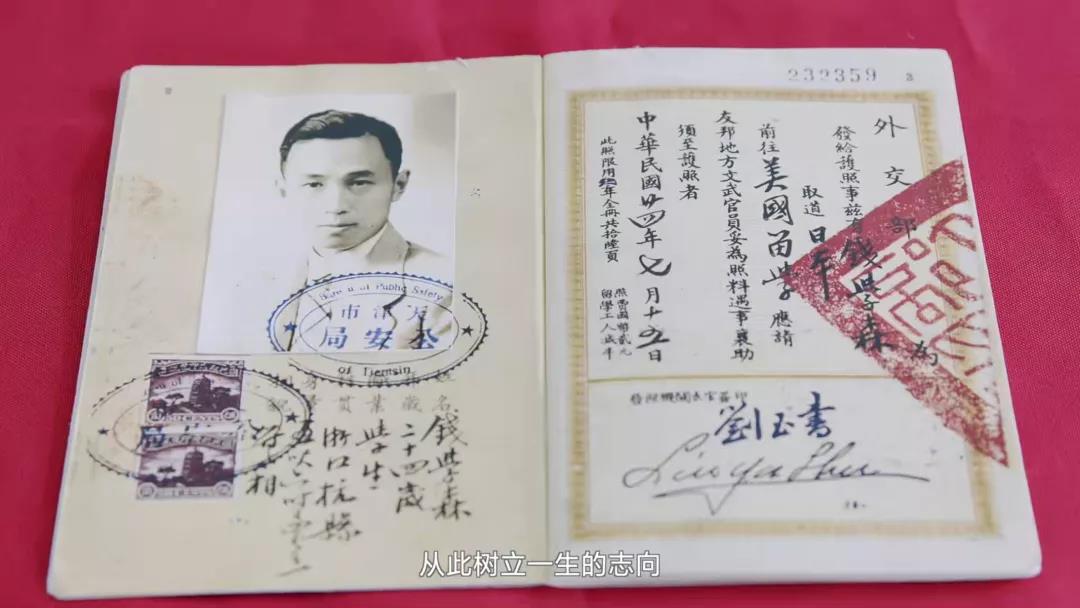 232359
3
外交部 為
發給護照事茲有錢學森
取道日本
前往美國留學應請
友邦地方文武官員妥為照料遇事襄助
須至護照者
中華民國廿四年七月十五日
此照限用 年全冊共拾陸頁
照費國幣貳元
留學工人減半
發照機關長官簽印
劉玉書
Liu Yu Shu
Bureau of Public Safety
天津市
公安局
of Tientsin
姓名 錢學森
年歲 二十四歲
職業 學生
籍貫 浙江杭縣
身長 五尺六寸
從此树立一生的志向